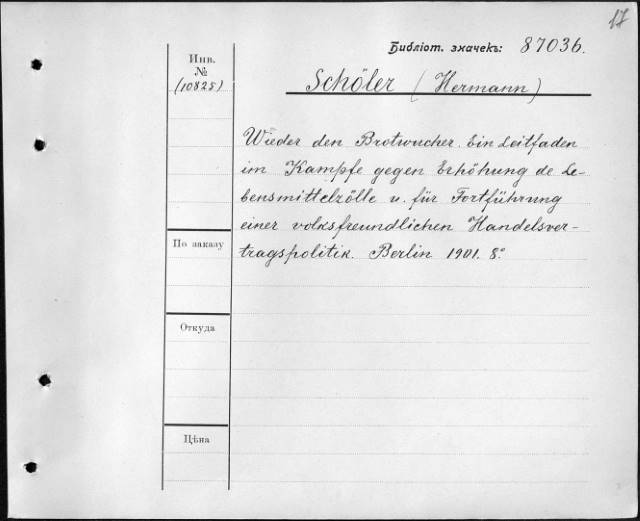 17
Библіот. значекъ: 87036.
Инв.
№
(10825)
Schöler (Hermann)
Wieder den Brotwucher. Ein Leitfaden
im Kampfe gegen Erhöhung de Le-
bensmittelzölle u. für Fortführung
einer volksfreundlichen Handelsver-
tragspolitik. Berlin 1901. 8.º
По заказу
Откуда
Цѣна